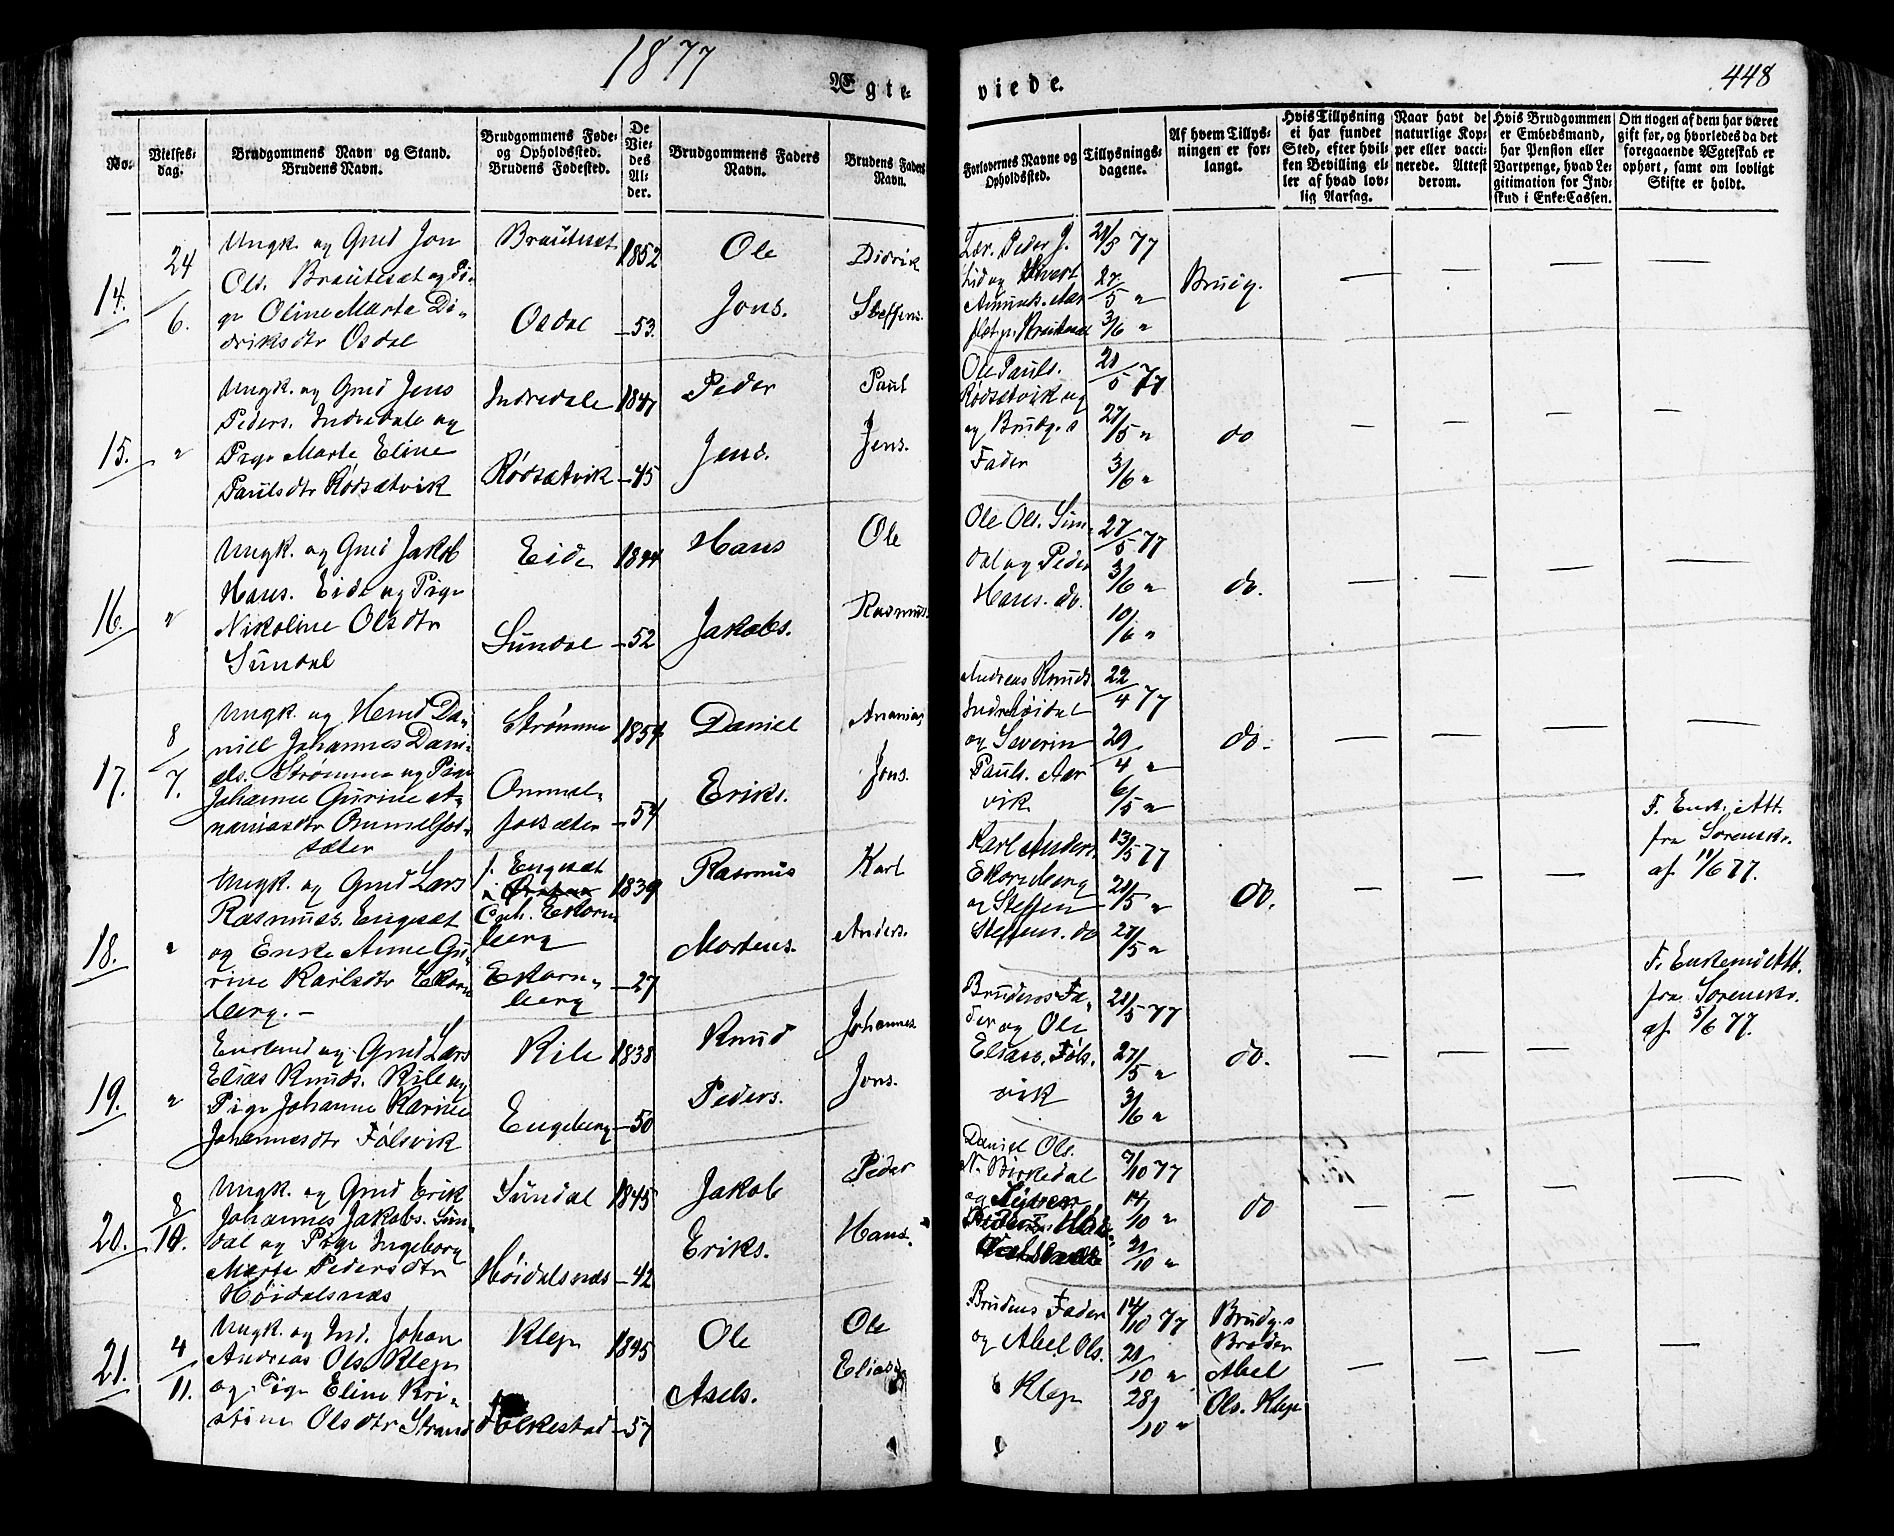 1877
Ægte
viede.
448
No.
Vielses-
dag.
Brudgommens Navn og Stand.
Brudens Navn.
Brudgommens Føde-
og Opholdssted.
Brudens Fødested.
De
Vie-
des
Al-
der.
Brudgommens Faders
Navn.
Brudens Faders
Navn.
Forlovernes Navne og
Opholdssted.
Tillysnings-
dagene.
Af hvem Tillys-
ningen er for-
langt.
Hvis Tillysning
ei har fundet
Sted, efter hvil-
ken Bevilling el-
ler af hvad lov-
lig Aarsag.
Naar havt de
naturlige Kop-
per eller vacci-
nerede. Attest
derom.
Hvis Brudgommen
er Embedsmand,
har Pension eller
Vartpenge, hvad Le-
gitimation for Ind-
skud i Enke-Cassen.
Om nogen af dem har været
gift før, og hvorledes da det
foregaaende Ægteskab er
ophørt, samt om lovligt
Skifte er holdt.
14.
24/6.
Ungk. og Gmd Jon
Ols. Brautesæt og Pi-
ge Oline Marte Di-
driksdtr Osdal
Brautesæt
Osdal
1852
–53.
Ole
Jons.
Didrik
Steffens.
Lær. Peder J.
Lid og Sivert
21/5 77
27/5 "
3/6 "
Brudg.
— — — —
15.
"
Ungk. og Gmd Jens
Peders. Indredale og
Pige Marte Eline
Paulsdtr Rødsætvik
Indredale
Rødsætvik
1847
–45
Peder
Jens.
Paul
Jens.
Ole Pauls.
Rødsætvik og
og Brudg.s
Fader
21/5 77
27/5 "
3/6 "
do
— — — —
16.
"
Ungk. og Gmd Jakob
Hans. Eide og Pige
Nikoline Olsdtr
Sundal
Eide
Sundal
1844
–52
Hans
Jakobs.
Ole
Rasmus.
Ole Ols. Sun-
dal og Peder
Hans. do.
27/5 77
3/6 "
10/6 "
do.
— — — —
17.
8/7.
Ungk. og Hmd Da-
niel Johannes Dani-
els. Strømme og Pige
Johanne Gurine A-
naniasdtr Ommelfot-
sæter
Strømme
Ommel-
fotsæter
1854
–54
Daniel
Eriks.
Ananias
Jons.
Andreas Knuds.
Indrehøidal
og Severin
Pauls. Aar
vik
22/4 77
29/4 "
6/5 "
do.
— — — —
18.
"
Ungk. og Gmd Lars
Rasmus. Engsæt
og Enke Anne Gu-
rine Karlsdtr Ekorn
berg. –
f. Engsæt
Oph. Ekorn
berg
Ekorn-
berg
1839
–27
Rasmus
Mortens.
Karl
Anders.
Karl Anders.
Ekornberg
og Steffen
Steffens. do
13/5 77
21/5 "
27/5 "
do.
— — —
F. Enk. Att.
fra Sorenskr.
af 11/6 77.
19.
"
Enkemd og Gmd Lars
Elias Knuds. Kile og
Pige Johanne Karine
Johannesdtr Følsvik
Kile
Engeberg
1838
–50
Knud
Peders.
Johannes
Jons.
Brudens Fa-
der og Ole
Eliass. Føls-
vik
21/5 77
27/5 "
3/6 "
do.
— — —
F. Enkemd Att.
fra Sorenskr.
af 5/6 77.
20.
8/10.
Ungk. og Gmd Erik
Johannes Jakobs. Sun-
dal og Pige Ingeborg
Marte Pedersdtr
Høidalsnæs
Sundal
Høidalsnæs
1845
–42
Jakob
Eriks.
Peder
Hans.
Daniel Ols.
N. Birkedal
og
7/10 77
14/10 "
21/10 "
do
— — — —
21.
4/11.
Ungk. og Ind. Johan
Andreas Ols. Klep
og Pige Eline Kri-
stine Olsdtr Strand
Klep
Folkestad
1845
–57
Ole
Axels.
Ole
Elias.
Brudens Fader
og Abel Ols.
Klep
14/10 77
21/10 "
28/10 "
Brudg.s
Broder
Abel
Ols. Klep
— — — —